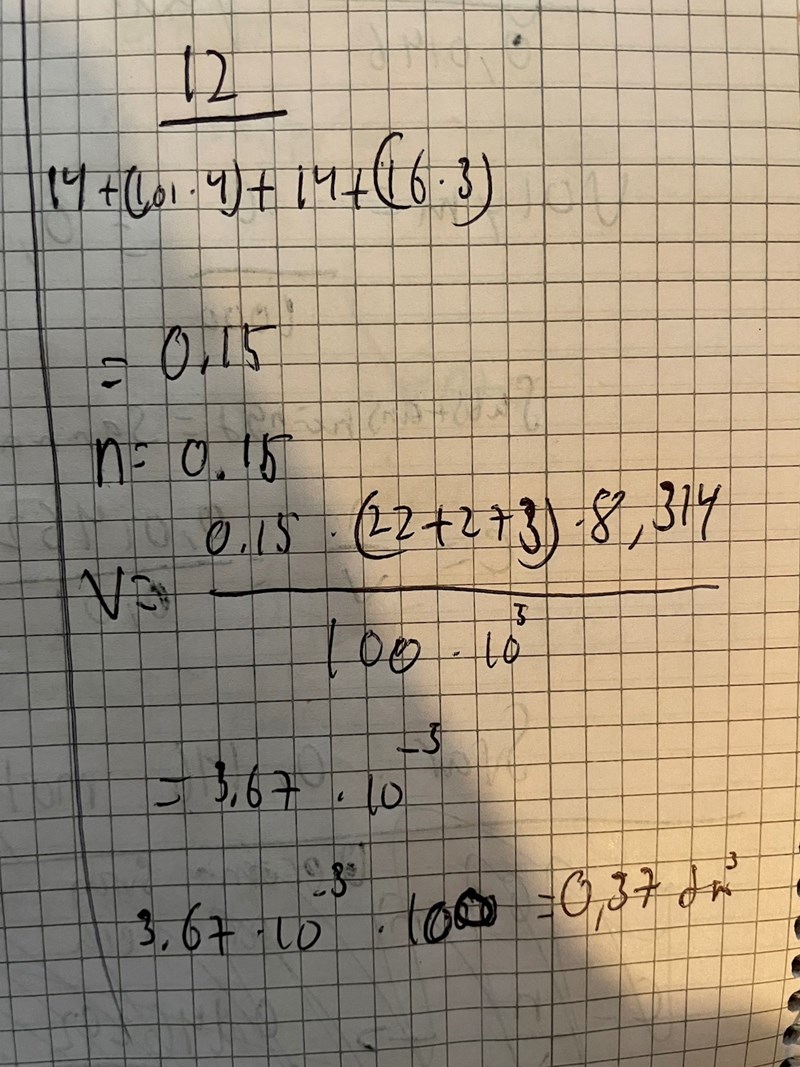 12
14 + (1,01 · 4) + 14 + (16 · 3)
= 0,15
n = 0.15
V = 0.15 · (22 + 273) · 8,314
100 · 10³
= 3,67 · 10⁻³
3,67 · 10⁻³ · 100 = 0,37 dm³